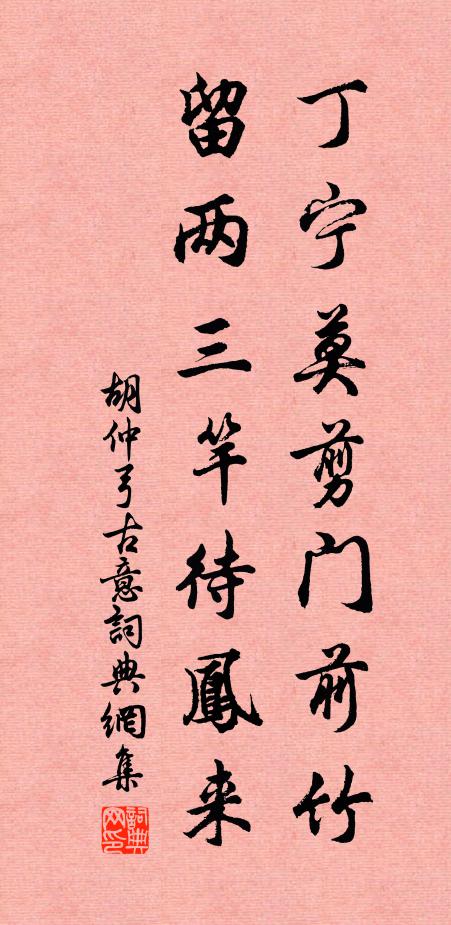 丁宁莫剪门前竹
留两三竿待鳳来
胡仲弓古意詞典網集
詞典网印